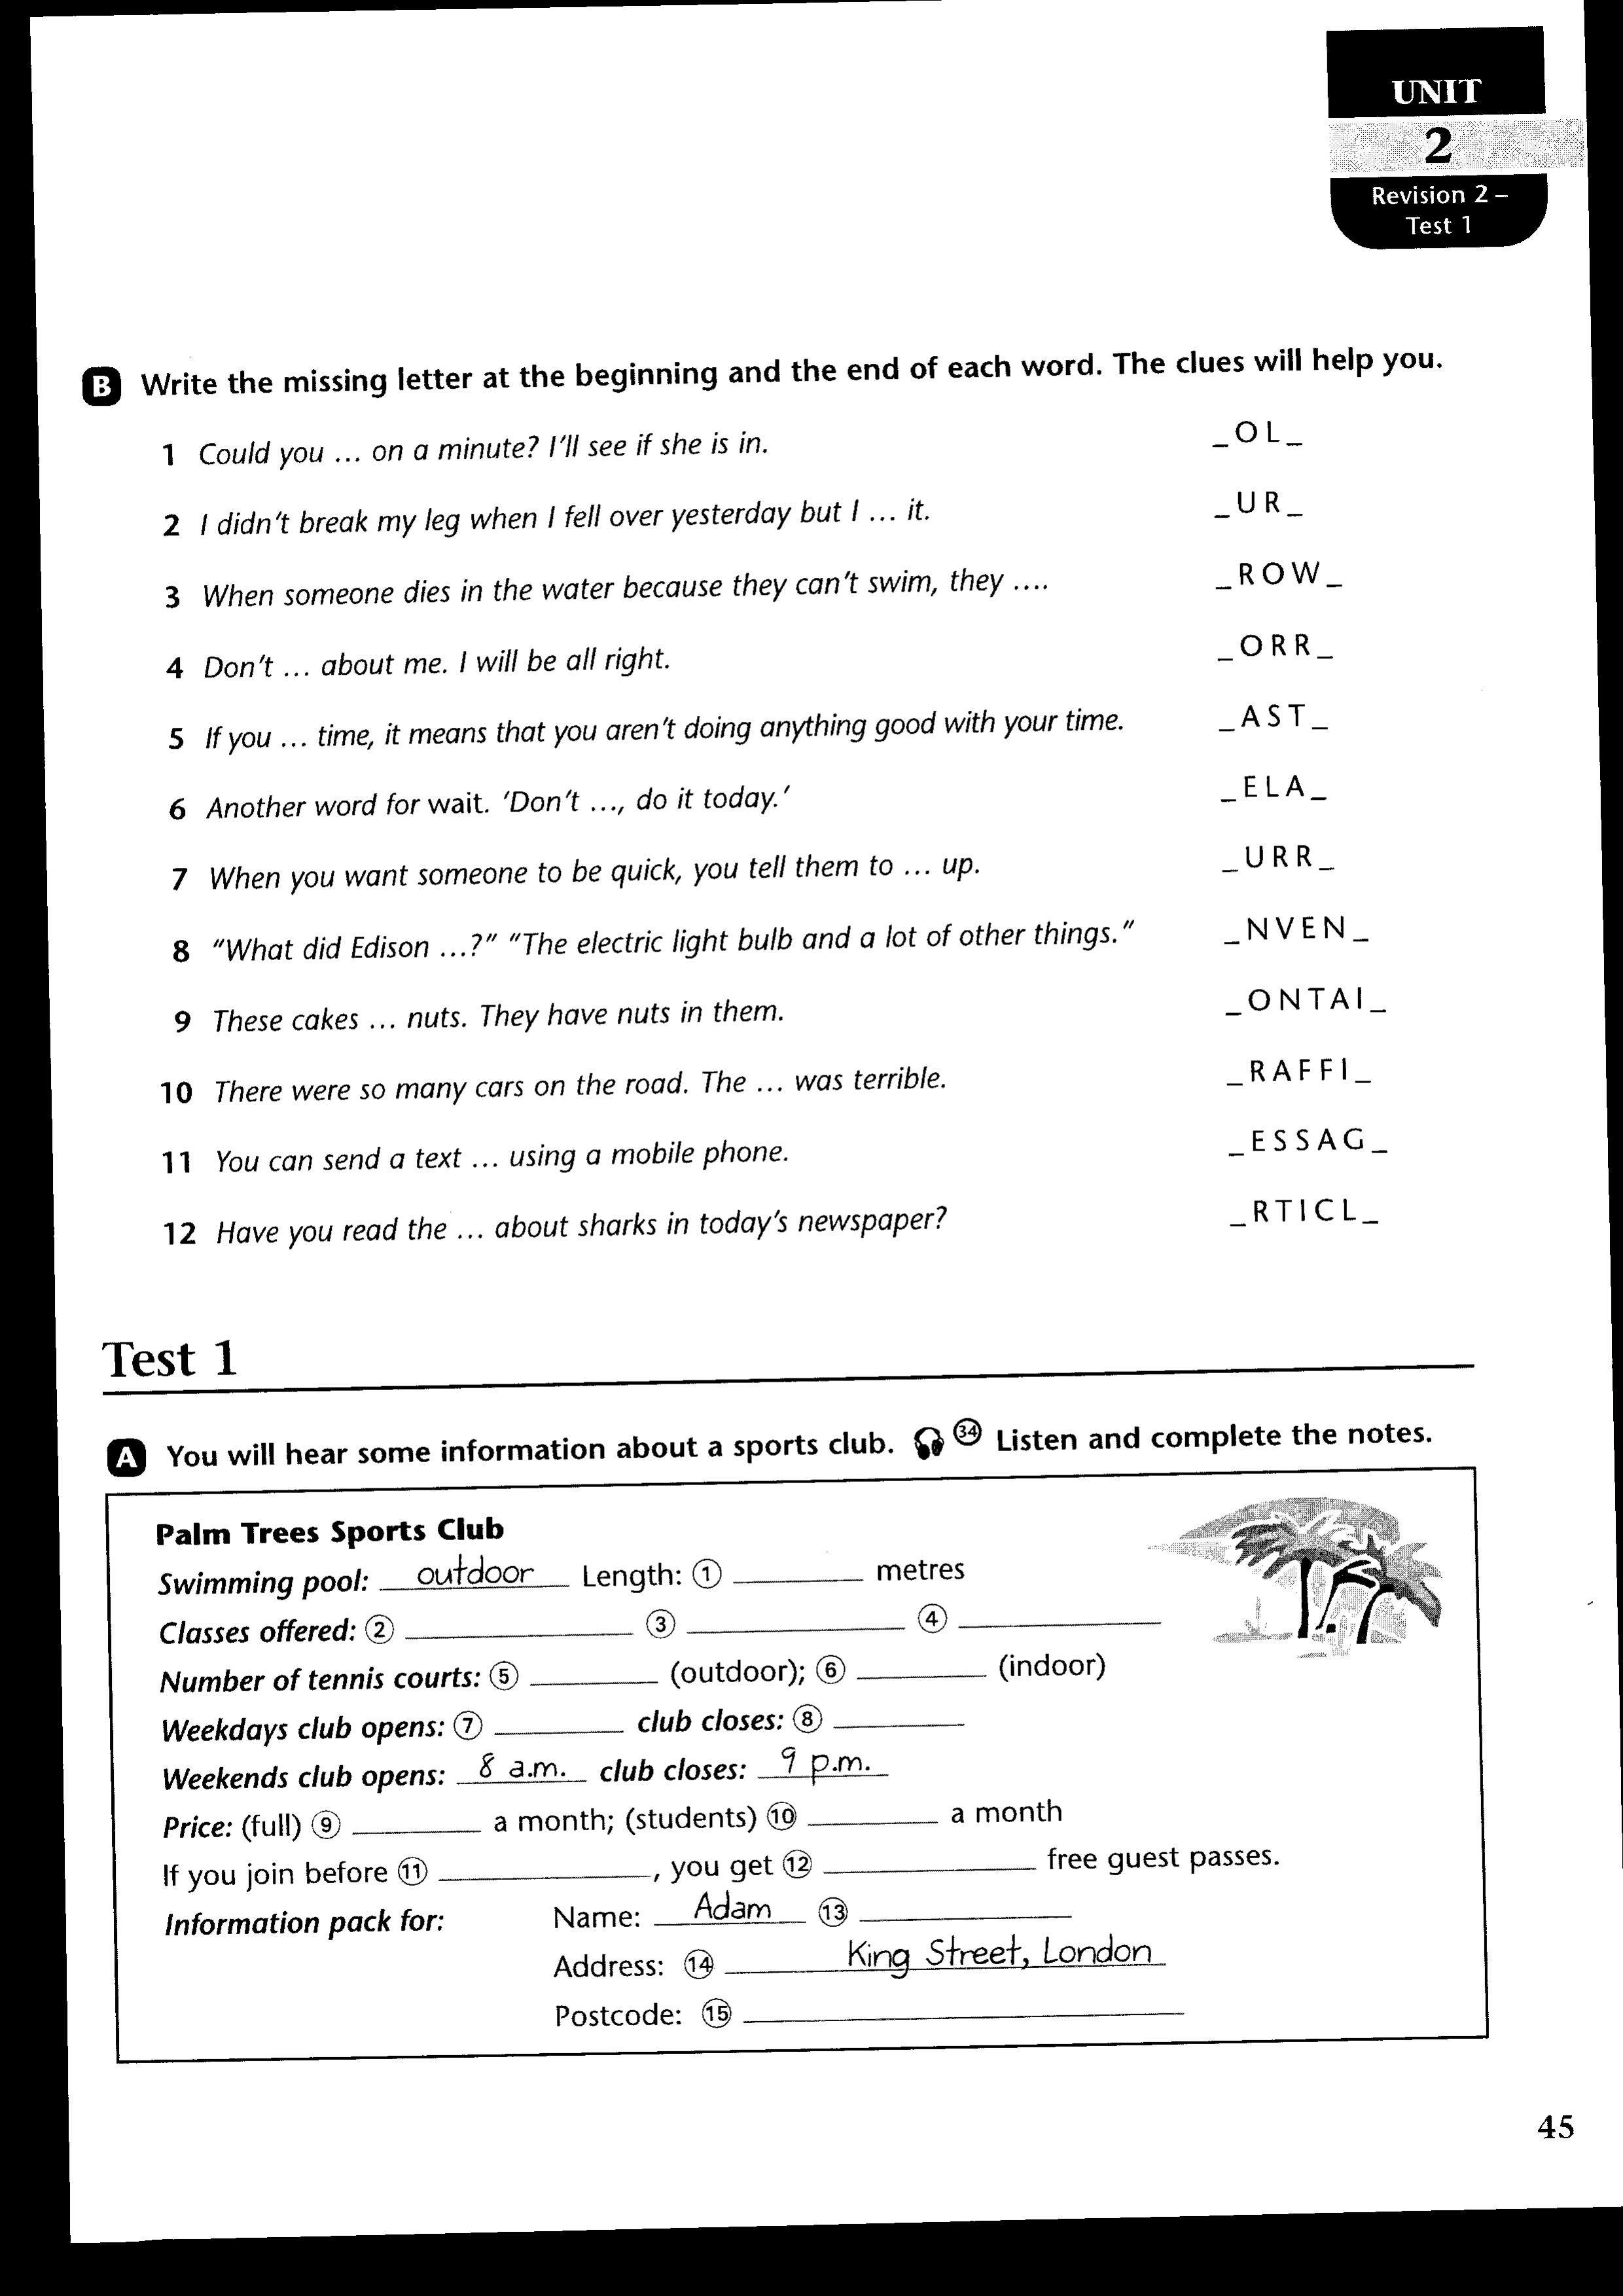 UNIT
2
Revision 2 –
Test 1
B Write the missing letter at the beginning and the end of each word. The clues will help you.
1 Could you ... on a minute? I'll see if she is in. _OL_
2 I didn't break my leg when I fell over yesterday but I ... it. _UR_
3 When someone dies in the water because they can't swim, they .... _ROW_
4 Don't ... about me. I will be all right. _ORR_
5 If you ... time, it means that you aren't doing anything good with your time. _AST_
6 Another word for wait. 'Don't ..., do it today.' _ELA_
7 When you want someone to be quick, you tell them to ... up. _URR_
8 "What did Edison ...?" "The electric light bulb and a lot of other things." _NVEN_
9 These cakes ... nuts. They have nuts in them. _ONTAI_
10 There were so many cars on the road. The ... was terrible. _RAFFI_
11 You can send a text ... using a mobile phone. _ESSAG_
12 Have you read the ... about sharks in today's newspaper? _RTICL_
Test 1
A You will hear some information about a sports club. 34 Listen and complete the notes.
Palm Trees Sports Club
Swimming pool: outdoor Length: ① ______ metres
Classes offered: ② ______ ③ ______ ④ ______
Number of tennis courts: ⑤ ______ (outdoor); ⑥ ______ (indoor)
Weekdays club opens: ⑦ ______ club closes: ⑧ ______
Weekends club opens: 8 a.m. club closes: 9 p.m.
Price: (full) ⑨ ______ a month; (students) ⑩ ______ a month
If you join before ⑪ ______, you get ⑫ ______ free guest passes.
Information pack for: Name: Adam ⑬ ______
Address: ⑭ ______ King Street, London
Postcode: ⑮ ______
45